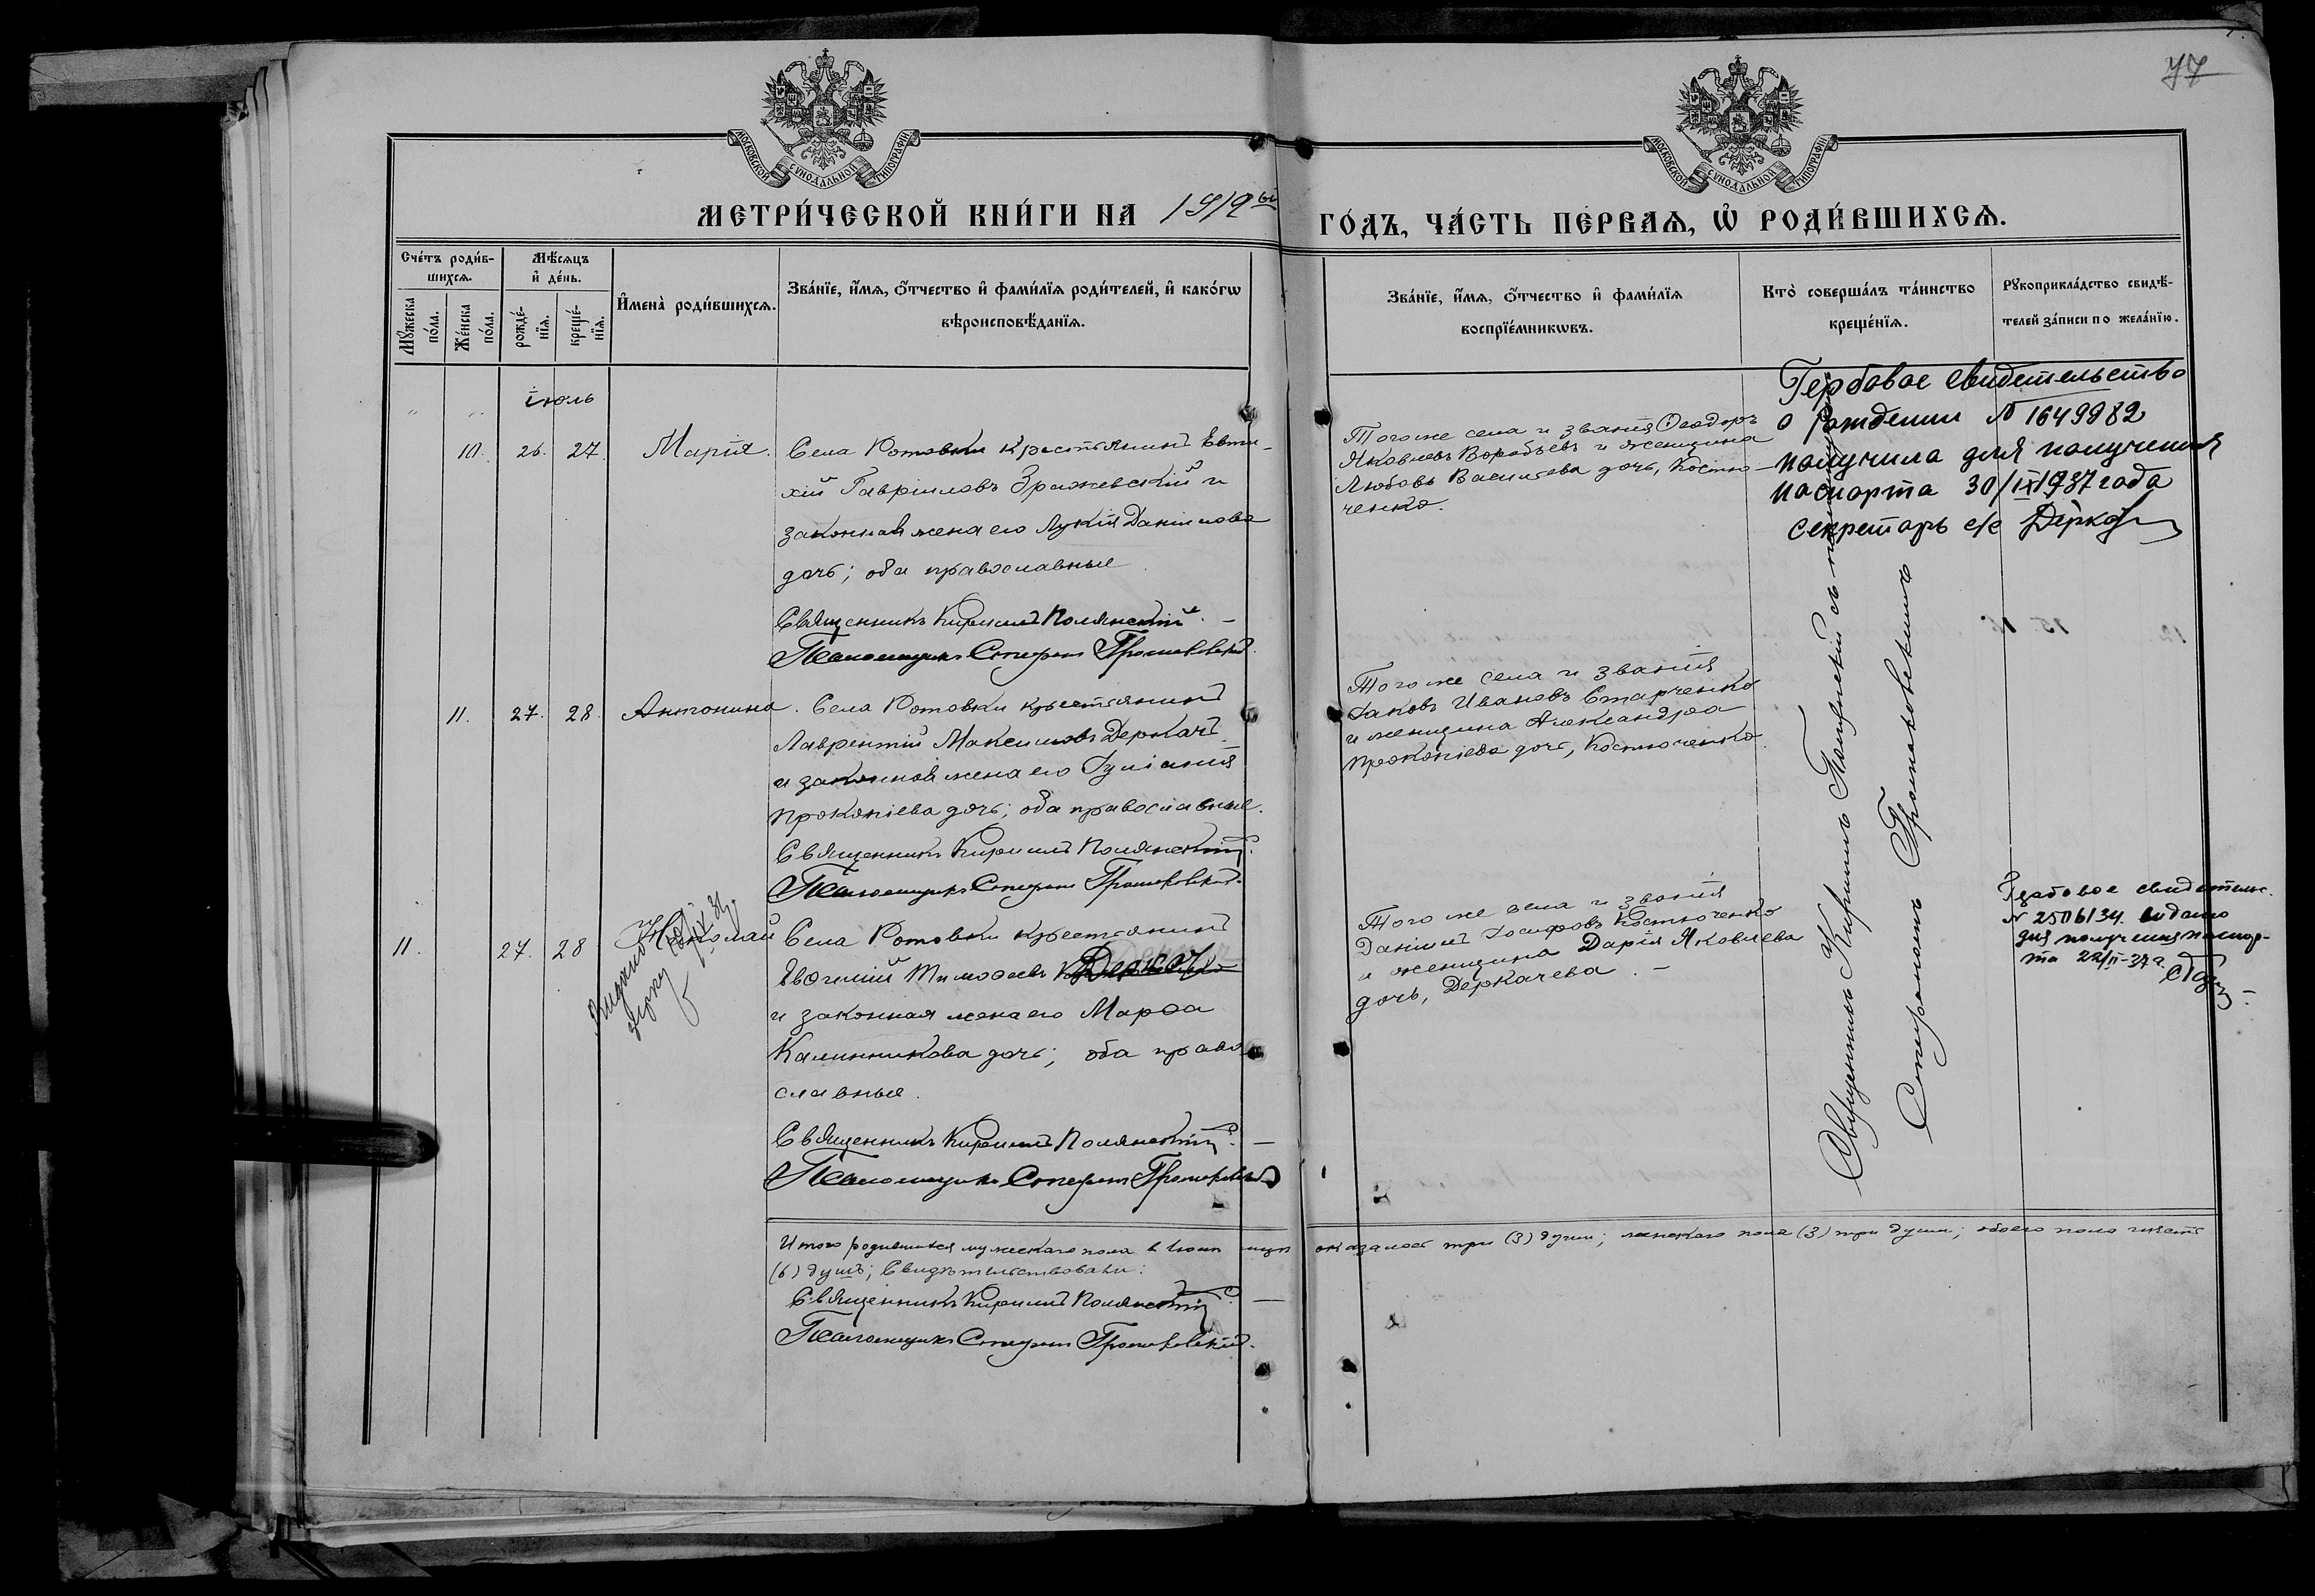 77
МОСКОВСКОЙ СѴНОДАЛЬНОЙ ТИПОГРАФІИ
МОСКОВСКОЙ СѴНОДАЛЬНОЙ ТИПОГРАФІИ
МЕТРИ́ЧЕСКОЙ КНИ́ГИ НА 1919ый
ГО́ДЪ, ЧА́СТЬ ПЕ́РВАѦ, Ѡ РОДИ́ВШИХСѦ.
Сче́тъ роди́в-
шихсѧ.
Мꙋ́жеска по́ла.
Же́нска по́ла.
Мѣ́сѧцъ
и҆ де́нь.
рожде́-
нїѧ.
креще́-
нїѧ.
И҆мена̀ роди́вшихсѧ.
Зва́нїе, и҆́мѧ, ѻ҆́тчество и҆ фами́лїѧ роди́телей, и҆ како́гѡ
вѣроисповѣ́данїѧ.
Зва́нїе, и҆́мѧ, ѻ҆́тчество и҆ фами́лїѧ
воспрїе́мникѡвъ.
Кто̀ соверша́лъ та́инство
креще́нїѧ.
Рꙋкоприкла́дство свидѣ́-
телей за́писи по жела́нїю.
Іюль
10. 26. 27. Марія.
Села Ротовки крестьянинъ Евти-
хій Гавріиловъ Зражевскій и
законная жена его Лукія Даніилова
дочь; оба православные.
Священникъ Кириллъ Полянскій. –
Псаломщикъ Стефанъ
Того же села и званія Ѳеодоръ
Яковлевъ Воробьевъ и женщина
Любовь Васильева дочь, Костю-
ченко.
Гербовое свидетельство
о рождении № 1649982
получила для получения
паспорта 30/IX 1937 года
секретарь с/с
11. 27. 28. Антонина.
Села Ротовки крестьянинъ
Лаврентій Максимовъ Деркачъ
и законная жена его Іуліанія
Прокопіева дочь; оба православные.
Священникъ Кириллъ Полянскій.
Псаломщикъ Стефанъ
Того же села и званія
Іаковъ Ивановъ Старченко
и женщина Александра
Прокопіева дочь, Костюченко.
11. 27. 28. Николай
Села Ротовки крестьянинъ
Евѳимій Тимоѳеевъ Деркач
и законная жена его Марѳа
Калинникова дочь; оба право-
славные.
Священникъ Кириллъ Полянскій. –
Псаломщикъ Стефанъ
Того же села и званія
Даніилъ Іосифовъ Костюченко
и женщина Дарія Яковлева
дочь, Деркачева. –
Гербовое свидетельс.
№ 2506134 видано
для получения паспор-
та 22/II-37 г.
Священникъ Кириллъ Полянскій съ псаломщикомъ
Стефаномъ
Итого родившихся мужескаго пола в Іюлѣ мцѣ оказалось три (3) души; женскаго пола (3) три души; обоего пола шесть
(6) душъ; Свидѣтельствовали:
Священникъ Кириллъ Полянскій. –
Псаломщикъ Стефанъ